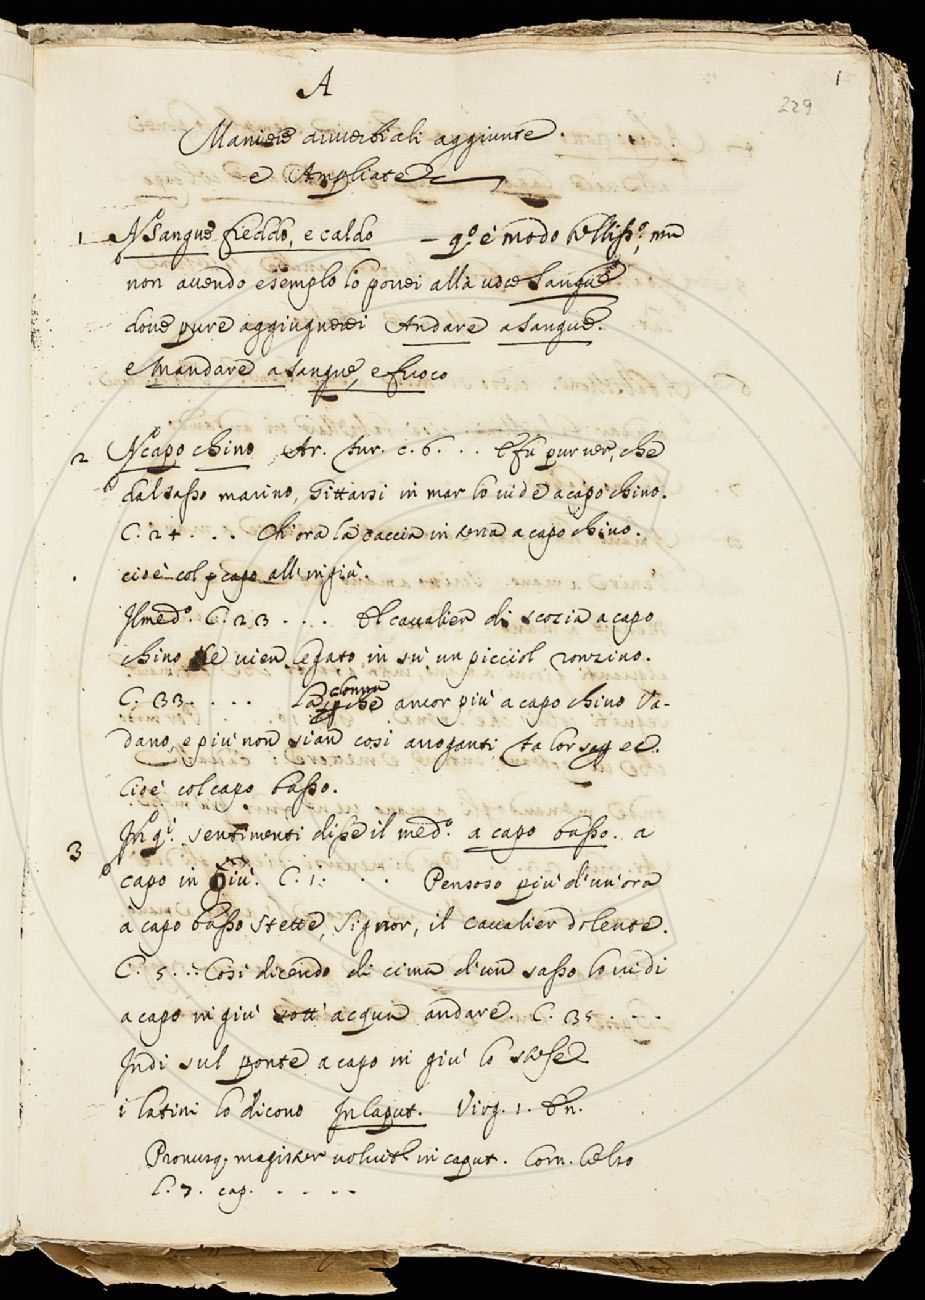 1
229
A
Maniere avverbiali aggiunte
e Ampliate
1 A sangue freddo, e caldo – q.o è modo belliss.o, ma
non avendo esemplo lo porrei alla voce Sangue
dove pure aggiugnerei Andare a sangue.
e Mandare a sangue, e fuoco
2 A capo chino Ar. fur. c. 6. . . E fù pur ver, che
dal sasso marino, Gittarsi in mar lo vide a capo chino.
C. 24 . . . Ch'ora la caccia in terra a capo chino.
cioè col capo all'ingiù.
Il med.o C. 23 . . . El cavalier di scozia a capo
chino se vien legato in sù un picciol ronzino.
C. 33 . . . . La donna che ancor più a capo chino Va-
dano, e più non sian così arroganti
Cioè col capo basso.
3 In q.i sentimenti disse il med.o a capo basso. a
capo in Giù. C. 1. . . Pensoso più d'un'ora
à capo basso stette, Signor, il cavalier dolente.
C. 5. . . Così dicendo di cima d'un sasso lo vidi
a capo in giù sott'acqua andare. C. 35 . . .
Indi sul ponte a capo in giù lo stese
i latini lo dicono In caput. Virg. 1. En.
Pronusq; magister volvitr in caput. Corn. Celso
l. 7. cap. . . . . .